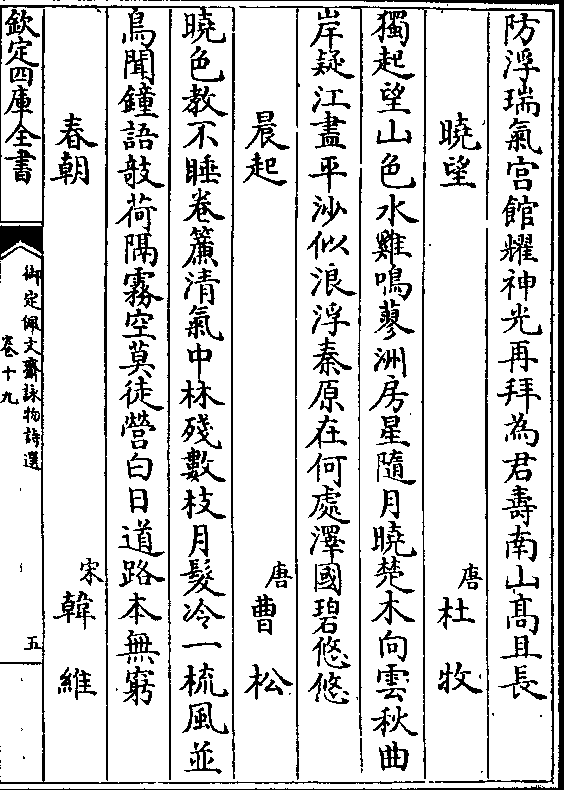 防浮瑞氣宫館耀神光再拜為君壽南山髙且長
曉望 唐 杜牧
獨起望山色水雞鳴蓼洲房星隨月曉楚木向雲秋曲
岸疑江盡平沙似浪浮秦原在何處澤國碧悠悠
晨起 唐 曹松
曉色教不睡卷簾清氣中林殘數枝月髮冷一梳風並
鳥聞鐘語敧荷隔霧空莫徒營白日道路本無窮
春朝 宋 韓維
欽定四庫全書
御定佩文齋詠物詩選
卷十九
五